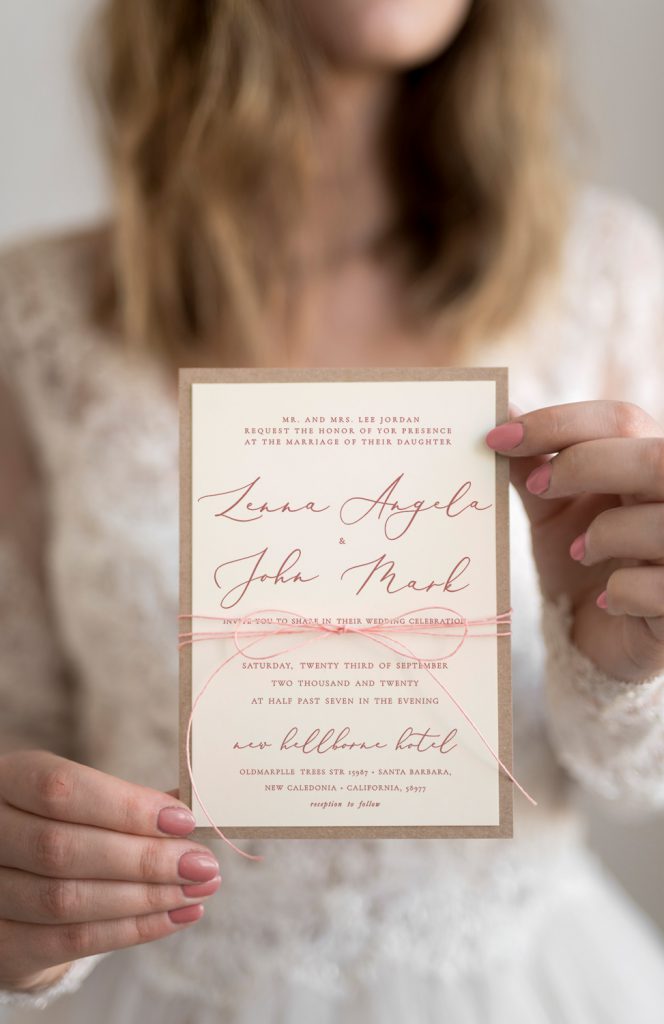 MR. AND MRS. LEE JORDAN
REQUEST THE HONOR OF YOR PRESENCE
AT THE MARRIAGE OF THEIR DAUGHTER
Lenna Angela
&
John Mark
INVITE YOU TO SHARE IN THEIR WEDDING CELEBRATION
SATURDAY, TWENTY THIRD OF SEPTEMBER
TWO THOUSAND AND TWENTY
AT HALF PAST SEVEN IN THE EVENING
new hellborne hotel
OLDMARPLLE TREES STR 15987 • SANTA BARBARA,
NEW CALEDONIA • CALIFORNIA, 58977
reception to follow